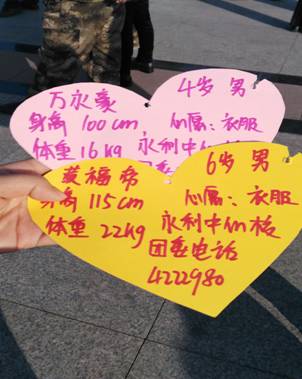 万永豪
4岁 男
身高 100cm
心属：衣服
体重 16kg
永利中
团委
6岁 男
福希
身高 115cm
心属：衣服
体重 22kg
永利中心校
团委电话
4222980